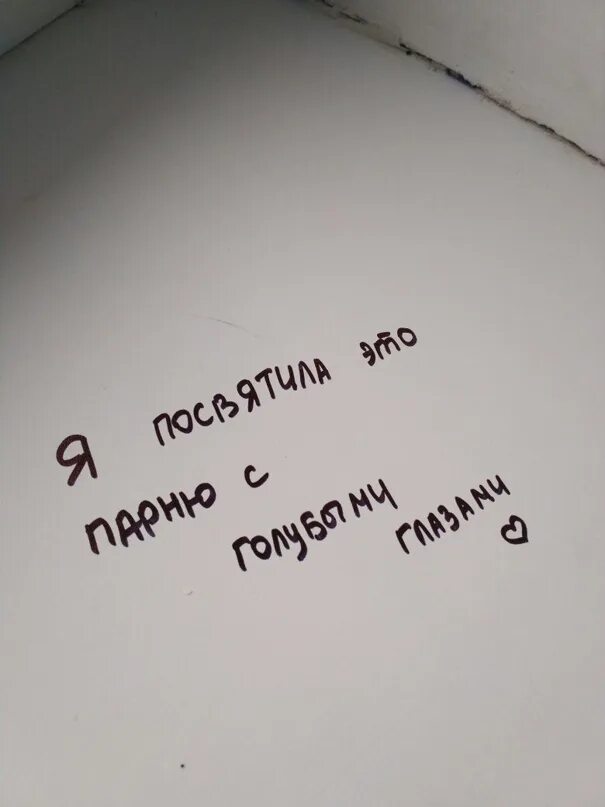 Я посвятила это
парню с
голубыми глазами